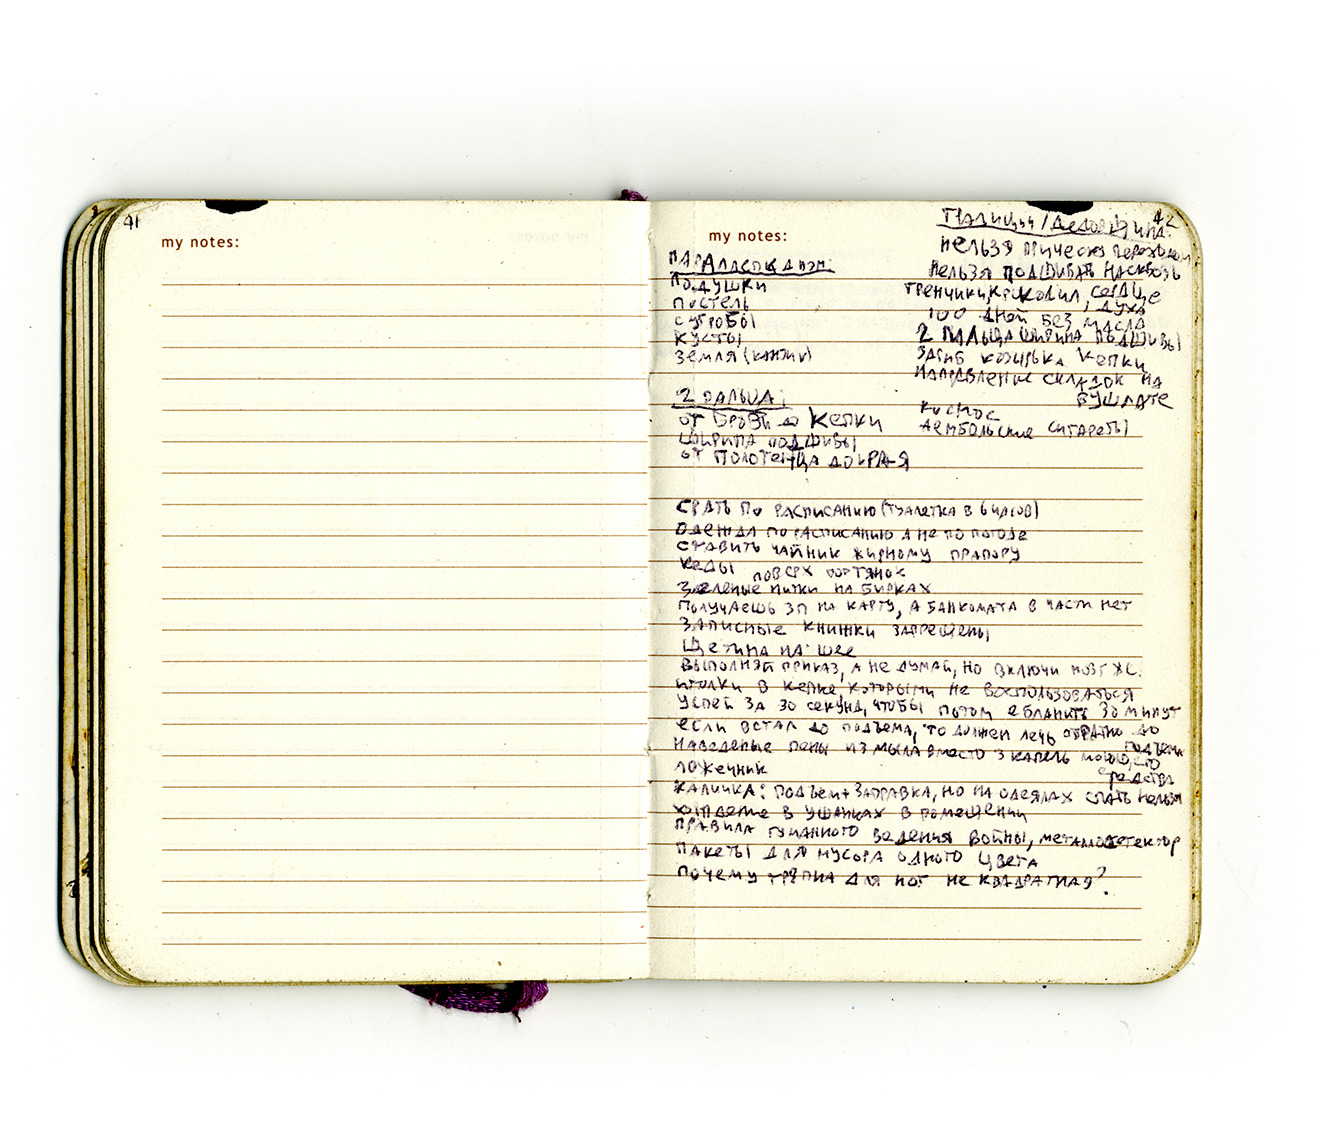 41
my notes:
my notes:
42
подушки
постель
сугробы
кусты
земля (
2 пальца:
от брови до кепки
ширина подшивы
от полотенца до края
нельзя
нельзя подшивать насквозь
тренчики, крокодил, сердце
духа
100 дней без масла
2 пальца ширина подшивы
загиб козырька кепки
направление складок на
бушлате
космос
дембольские сигареты
срать по расписанию (туалетка в
одежда по расписанию а не по погоде
ставить чайник жирному прапору
кеды поверх портянок
зеленые нитки на бирках
получаешь зп на карту, а банкомата в части нет
записные книжки запрещены
щетина на шее
выполняй приказ, а не думай, но включи мозг же.
иголки в кепке которыми не воспользоваться
успей за 30 секунд, чтобы потом ебланить 30 минут
если встал до подъема, то должен лечь обратно до
подъема
наведеные пены из мыла вместо 3 капель моющего
средства
ложечник
каличка: подъем + заправка, но на одеялах спать нельзя
хождение в ушанках в помещении
правила гуманного ведения войны, металодетектор
пакеты для мусора одного цвета
почему тряпка для ног не квадратная?